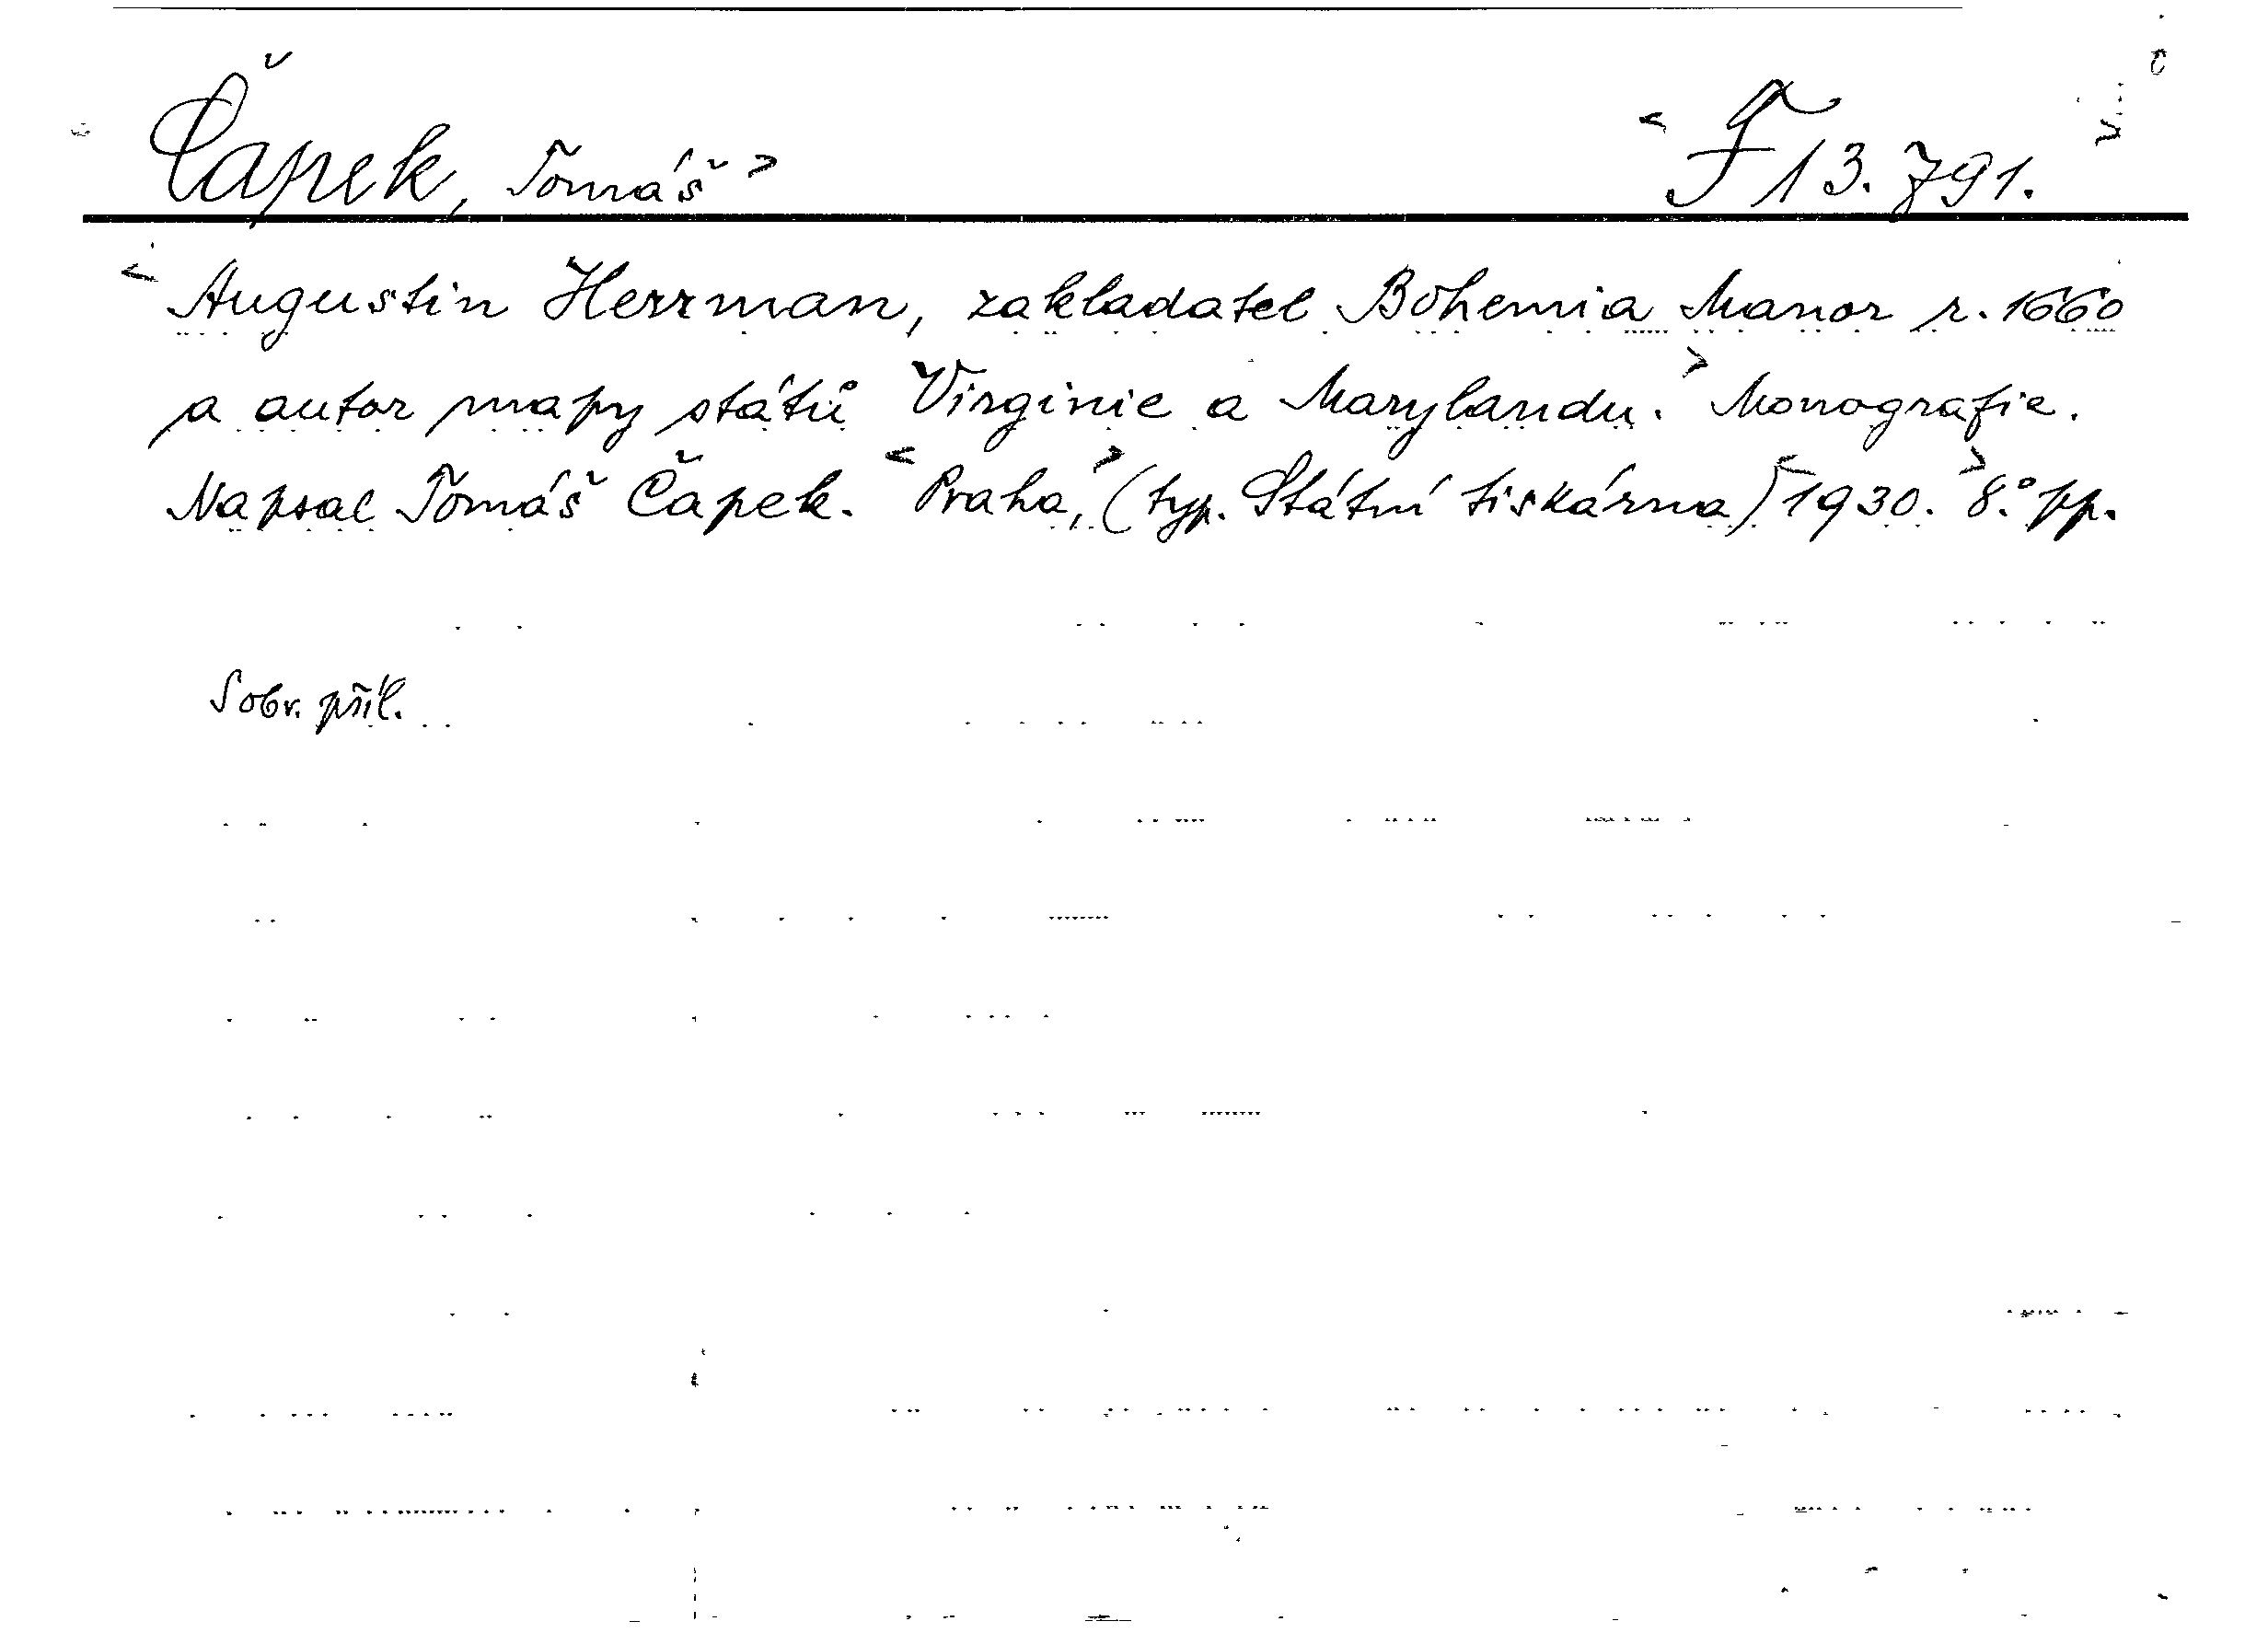 Čapek, Tomáš > < F 13.791. >
< Augustin Herrman, zakladatel Bohemia Manor r. 1660
a autor mapy států Virginie a Marylandu. > Monografie.
Napsal Tomáš Čapek. < Praha, > (typ. Státní tiskárna) < 1930. > 8.° pp.
S obr. příl.